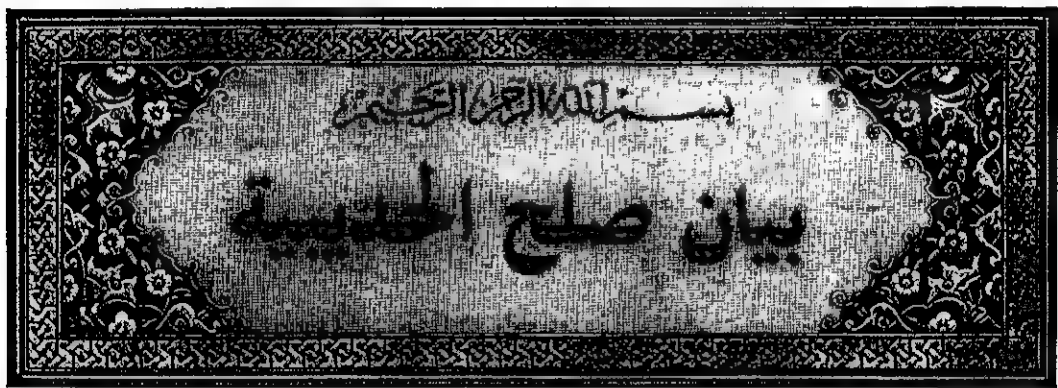 بسم الله الرحمن الرحيم
بيان صلح الحديبية